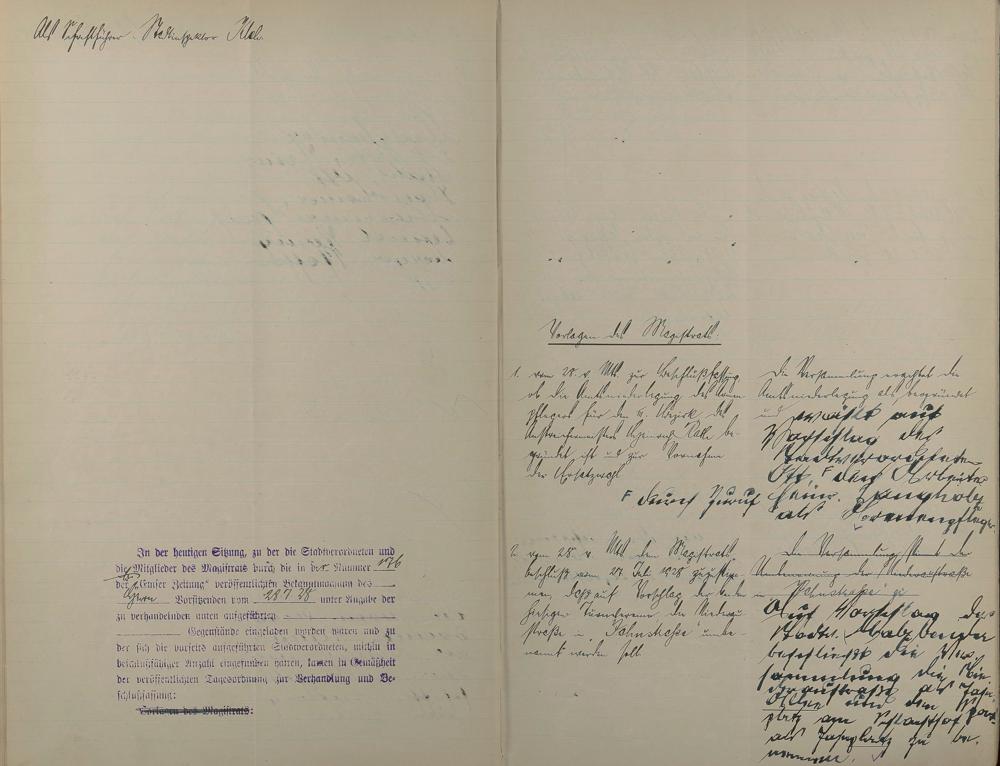 Als Schriftführer: Stadtinspektor
In der heutigen Sitzung, zu der die Stadtverordneten und
die Mitglieder des Magistrats durch die in der Nummer 176
der „Unser Zeitung“ veröffentlichten Bekanntmachung des
Herrn Vorsitzenden vom 28 7 28 unter Angabe der
zu verhandelnden unten aufgeführten
Gegenstände eingeladen worden waren und zu
der sich die vorseits aufgeführten Stadtverordneten, mithin in
beschlußfähiger Anzahl eingefunden hatten, kamen in Gemäßheit
der veröffentlichten Tagesordnung zur Verhandlung und Be-
schlußfassung:
Vorlagen des Magistrats:
Vorlagen des Magistrats.
1. vom 28. v. Mts. zur Beschlußfassung
ob die Amtsniederlegung des Armen
pflegers für den 4. Bezirk des
be-
gründet ist und zur Vornahme
der Ersatzwahl
Die Versammlung erachtet die
Amtsniederlegung als begründet
und wählt auf
Vorschlag des
Stadtverordneten
Ott, F den Arbeiter
F durch Zuruf
Heinr. Langholz
als Armenpfleger
2. vom 28. v. Mts. dem Magistrats-
beschluß vom 27. Juli 1928 zuzustim-
men, daß auf Vorschlag der
hiesiger Turnvereine die Niederau
straße in "Jahnstraße" umbe-
nannt werden soll.
Die Versammlung stimmt der
Umbenennung der Niederaustraße
in Jahnstraße zu
Auf Vorschlag des
Stadtv.
beschließt die Ver-
sammlung die Nie-
deraustraße als Jahn-
Allee und den
platz am Schlachthof
als Jahnplatz zu be-
nennen.